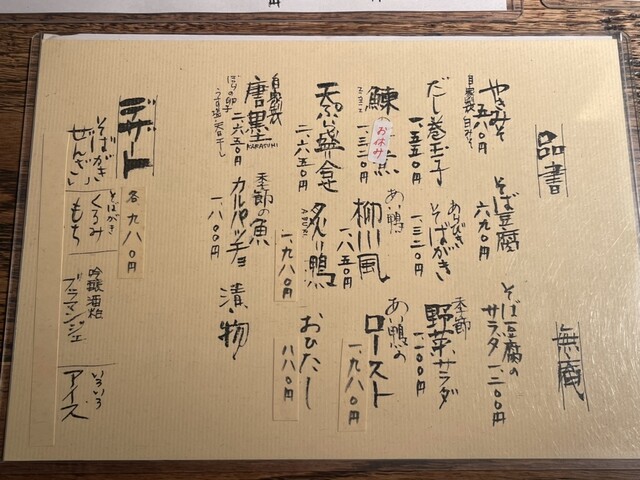 品書
無庵
やきみそ
五八〇円
自家製 白みそ
そば豆腐
六九〇円
そば豆腐の
サラダ
一、二〇〇円
だし巻玉子
一、五五〇円
あらびき
そばがき
一、三二〇円
季節
野菜サラダ
一、一〇〇円
鰊
お休み
一、三二〇円
あい鴨
柳川風
一、六五〇円
あい鴨の
ロースト
一、九八〇円
天ぷら盛り合せ
二、六五〇円
炙り鴨
一、九八〇円
おひたし
八八〇円
自家製
唐墨
KARASUMI
二、六五〇円
ぼらの卵子
うす塩一夜干し
季節の魚
カルパッチョ
一、八〇〇円
漬け物
デザート
各九八〇円
そばがき
ぜんざい
そばがき
くるみ
もち
吟醸酒粕
ブラマンジェ
いろいろ
アイス